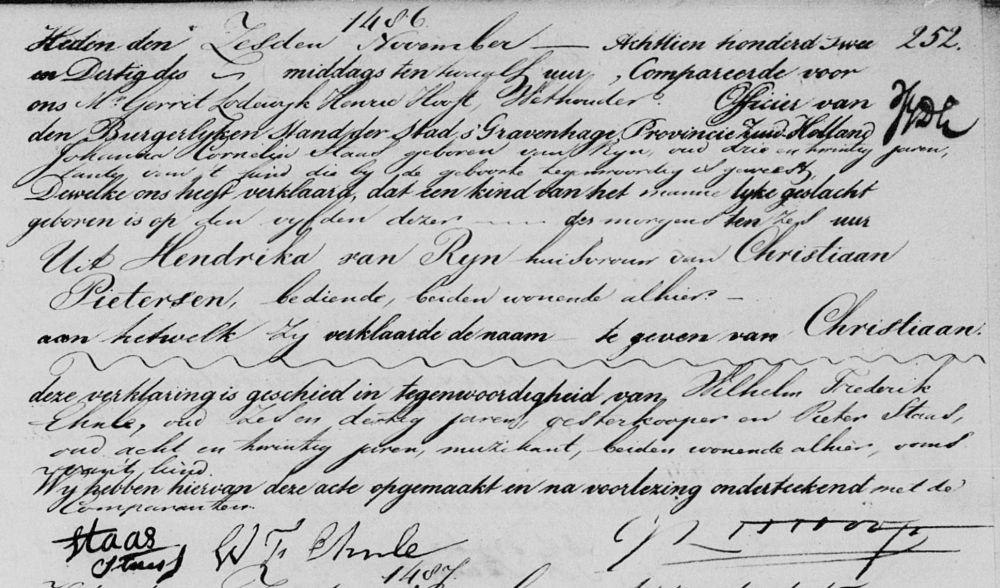 1486.
Heden den Zesden November Achttien honderd Twee 252.
en Dertig des middags ten twaalf uur, Compareerde voor
ons Mr. Gerrit Lodewyk Henrie Hooft, Wethouder. Officier van
den Burgerlyken Stand der Stad 's Gravenhage, Provincie Zuid-Holland
Johanna Cornelia Staas geboren van Ryn, oud drie en twintig jaren,
tante van 't kind die by de geboorte tegenwoordig is geweest,
Dewelke ons heeft verklaard, dat een kind van het mannelyke geslacht
geboren is op den vyfden dezer des morgens ten zes uur
Uit Hendrika van Ryn huisvrouw van Christiaan
Pietersen, bediende, beiden wonende alhier.
aan hetwelk zy verklaarde de naam te geven van Christiaan.
deze verklaring is geschied in tegenwoordigheid van Wilhelm Frederik
Ehnle, oud zes en dertig jaren, oesterkooper en Pieter Staas,
oud acht en twintig jaren, muzikant, beiden wonende alhier, ooms
van 't kind.
Wy hebben hiervan deze acte opgemaakt en na voorlezing onderteekend met de
Comparanten.
Staas W F Ehnle
1487.